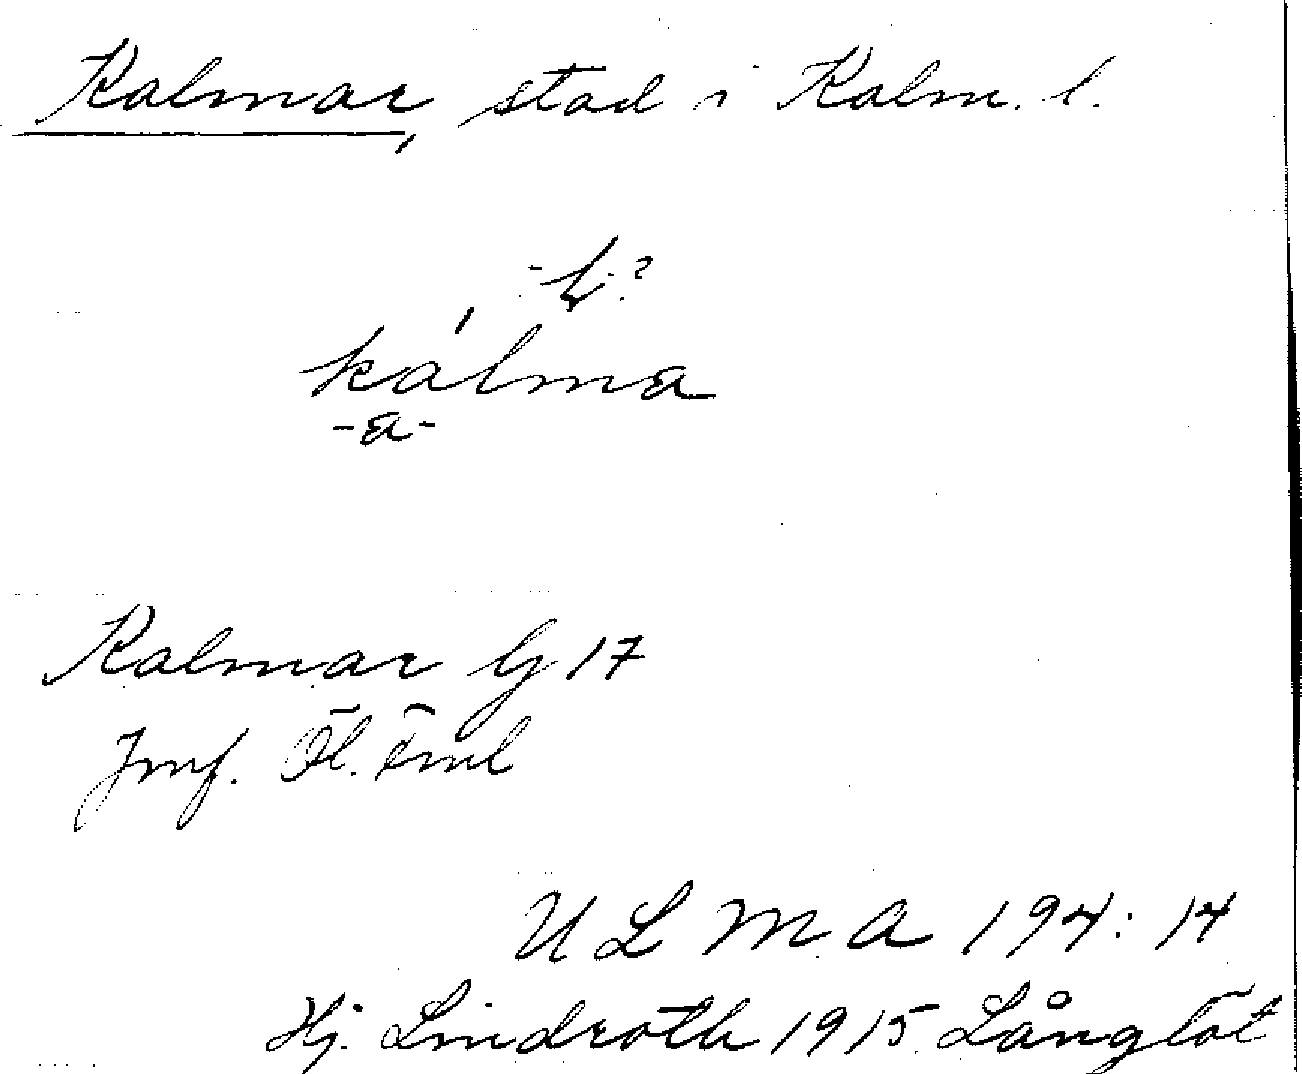 Kalmar, stad i Kalm. l.
kálma
-a-
Kalmar G 17
Inf. Öl. Eml
ULMA 194:14
Hj. Lindroth 1915. Långlöt